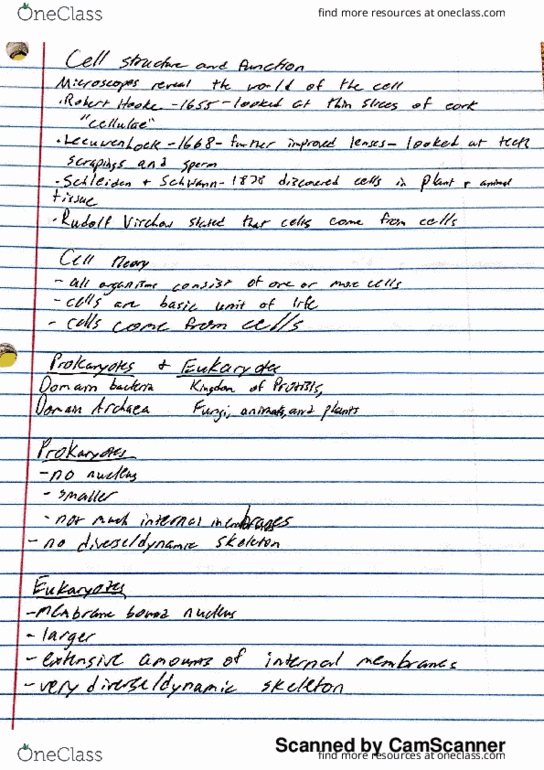 OneClass
find more resources at oneclass.com
Cell structure and function
Microscopes reveal the world of the cell
· Robert Hooke - 1655 - looked at thin slices of cork
"cellulae"
· Leeuvenhock - 1668 - further improved lenses - looked at teeth
scrapings and sperm
· Schleiden + Schwann - 1838 discovered cells in plant + animal
tissue
· Rudolf Virchow stated that cells come from cells
Cell theory
- all organisms consist of one or more cells
- cells are basic unit of life
- cells come from cells
Prokaryotes + Eukaryotes
Domain bacteria Kingdom of Protists,
Domain Archaea Fungi, animals, and plants
Prokaryotes
- no nucleus
- smaller
- not much internal membranes
- no diverse/dynamic skeleton
Eukaryotes
- membrane bound nucleus
- larger
- extensive amounts of internal membranes
- very diverse/dynamic skeleton
Scanned by CamScanner
OneClass
find more resources at oneclass.com